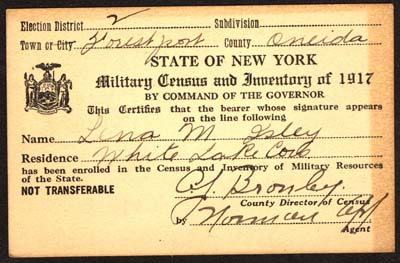 Election District 2 Subdivision
Town or City Forestport County Oneida
STATE OF NEW YORK
Military Census and Inventory of 1917
BY COMMAND OF THE GOVERNOR
This Certifies that the bearer whose signature appears
on the line following
Name Lena M
Residence White Lake
has been enrolled in the Census and Inventory of Military Resources
of the State.
NOT TRANSFERABLE
County Director of Census
by
Agent